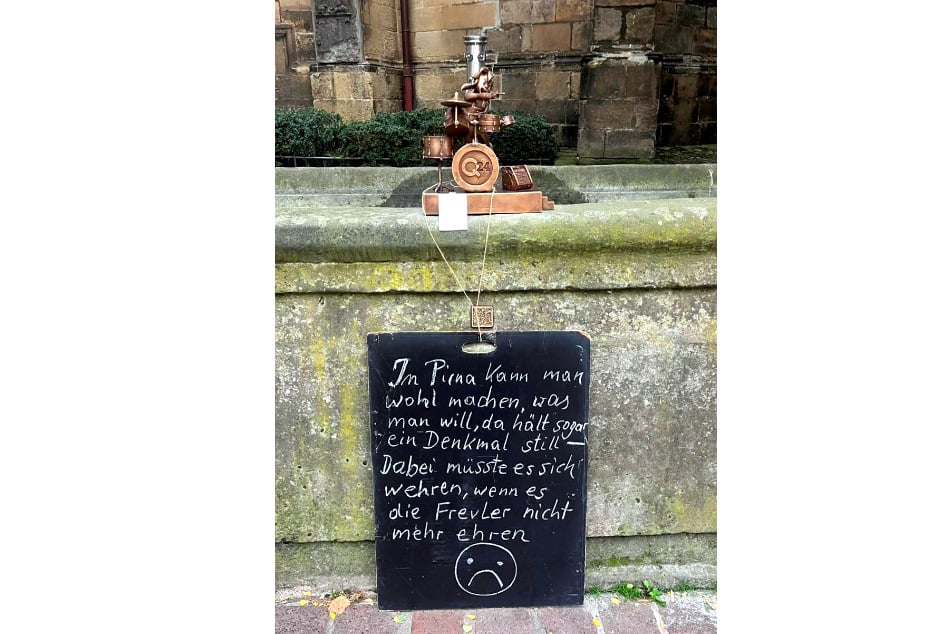 Q24
In Pirna kann man
wohl machen, was
man will, da hält sogar
ein Denkmal still –
Dabei müsste es sich
wehren, wenn es
die Frevler nicht
mehr ehren